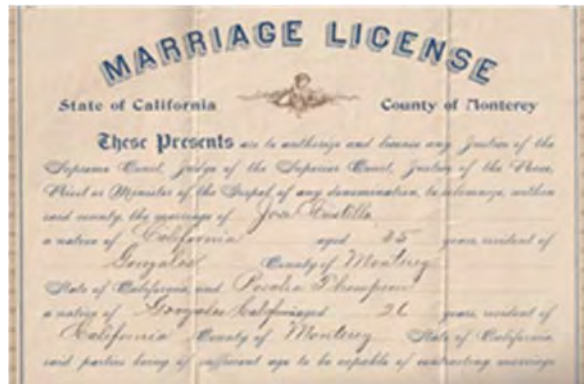 MARRIAGE LICENSE
State of California County of Monterey
These Presents are to authorize and license any Justice of the
Supreme Court, Judge of the Superior Court, Justice of the Peace,
Priest or Minister of the Gospel of any denomination, to solemnize, within
said county, the marriage of Jose Castillo
a native of California aged 35 years, resident of
Gonzales County of Monterey
State of California, and Rosalia Thompson
a native of Gonzales California aged years, resident of
California County of Monterey State of California
said parties being of sufficient age to be capable of contracting marriage